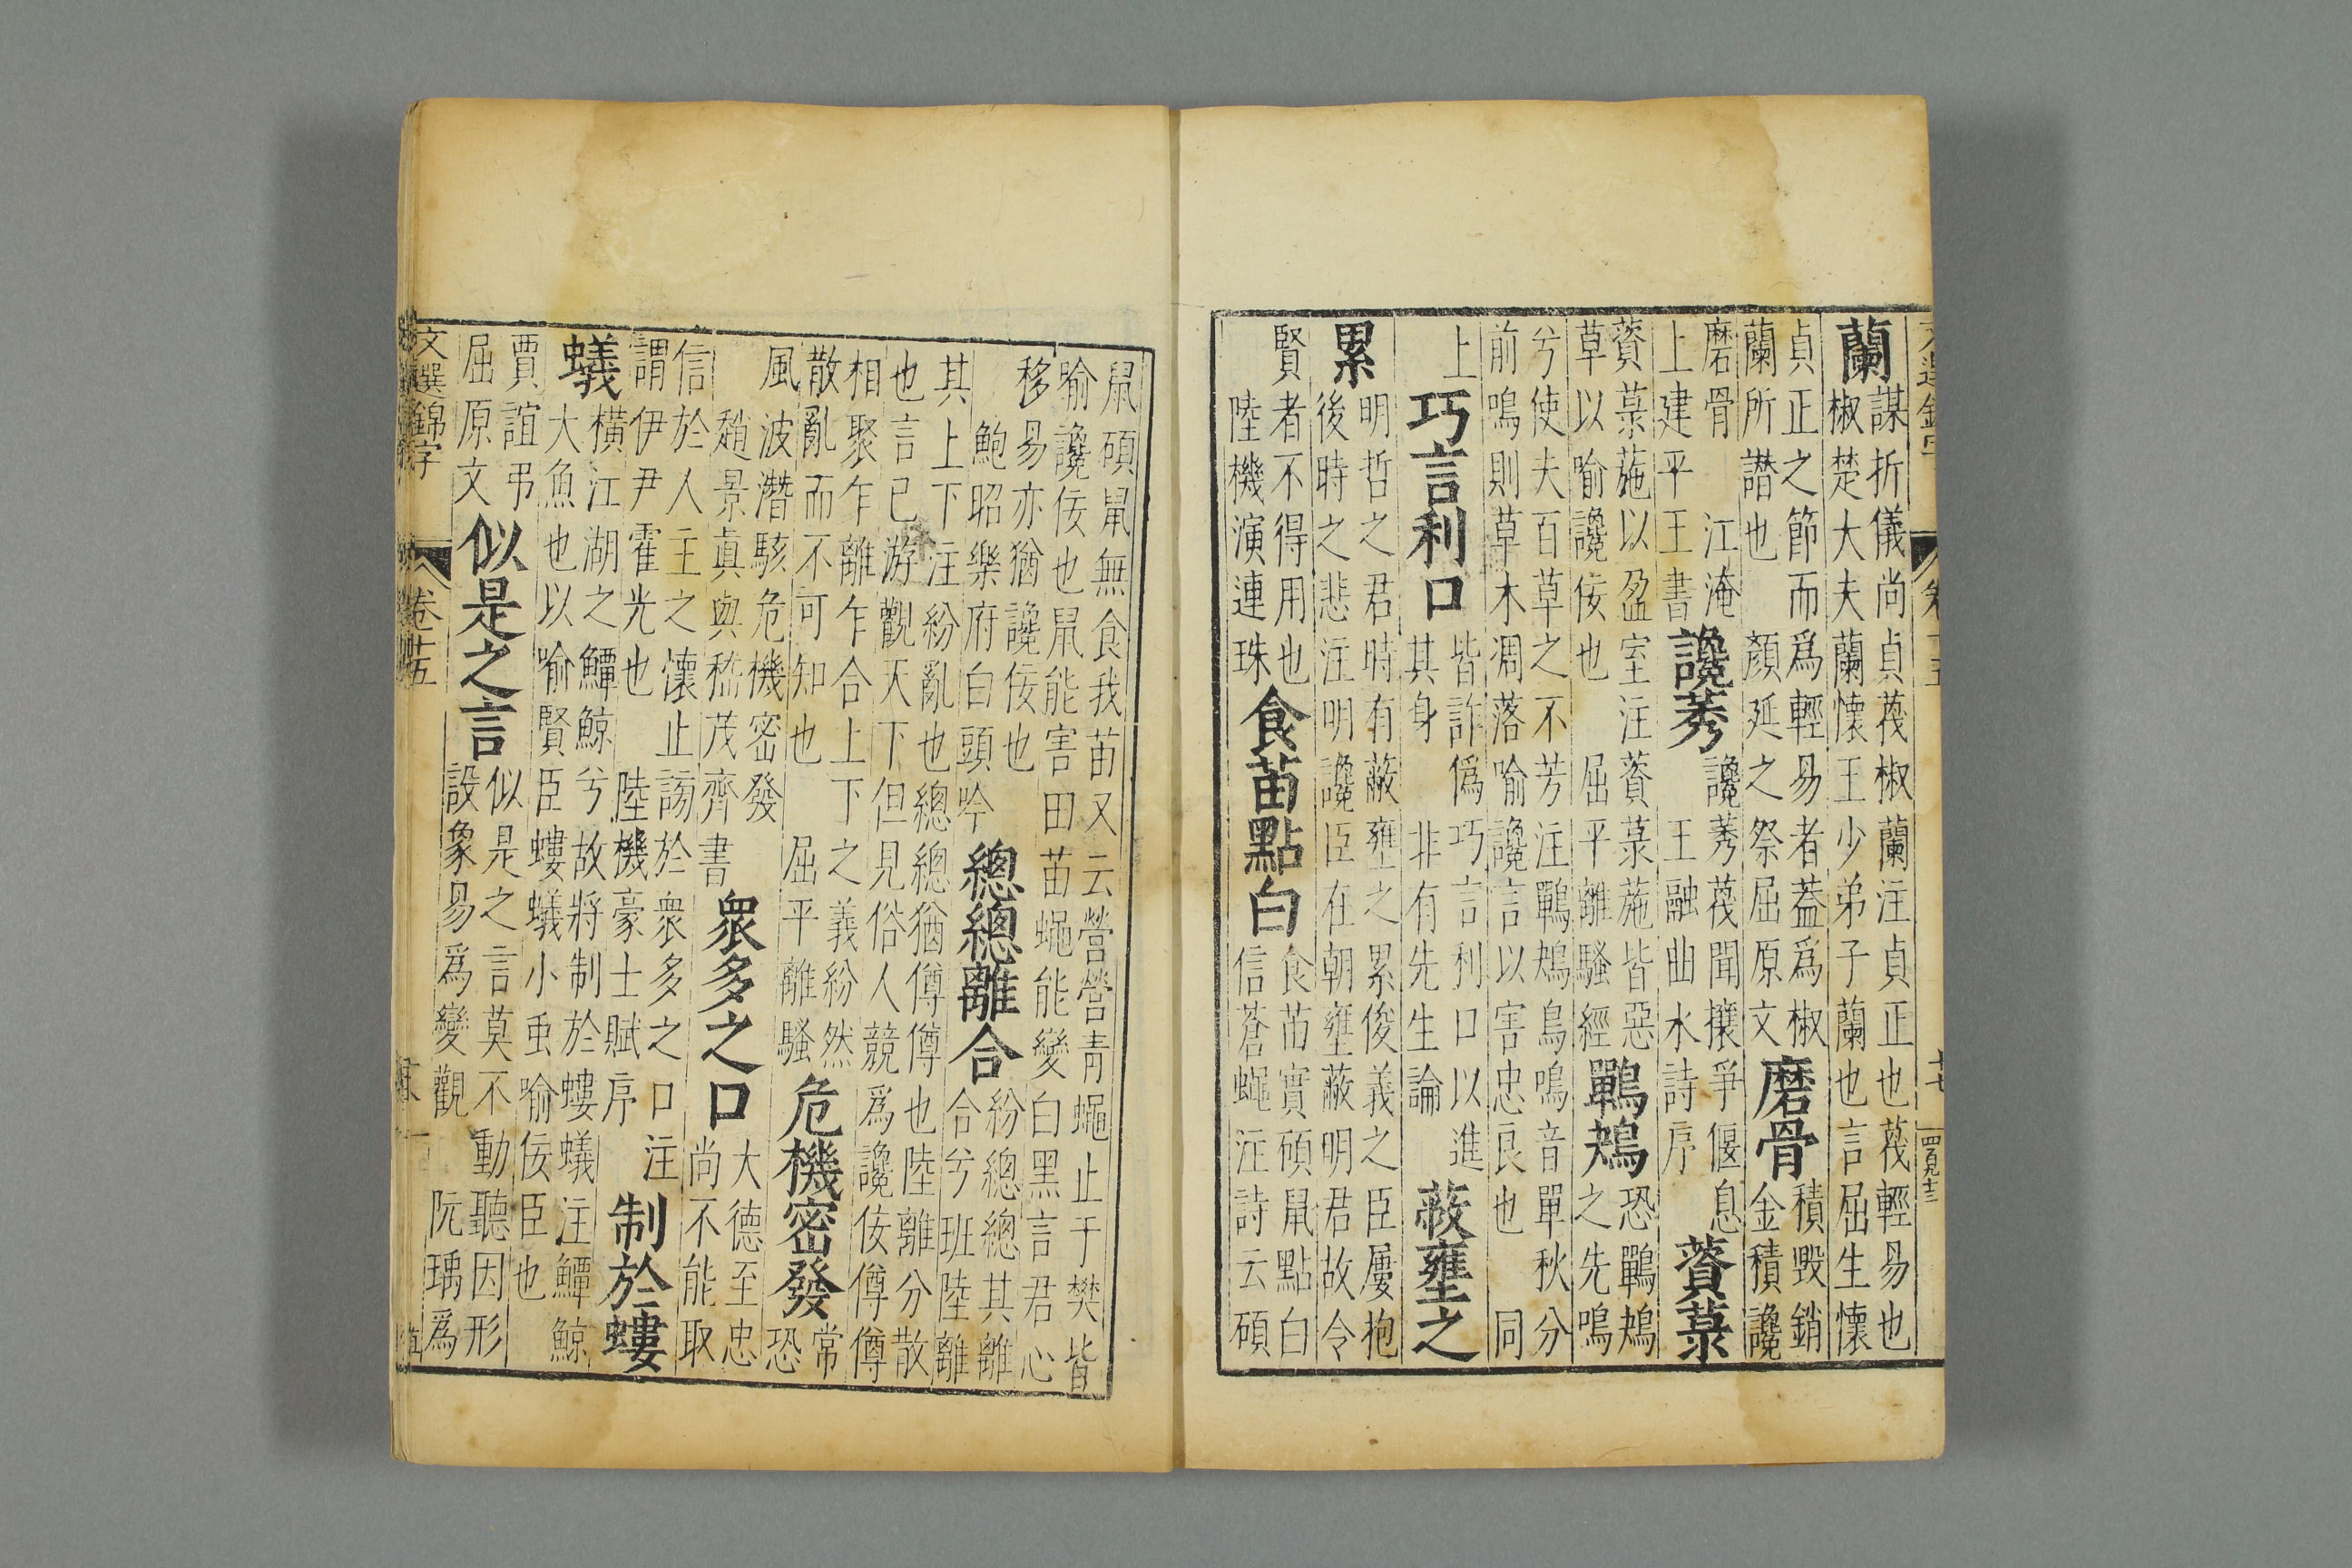 蘭謀折儀尚貞蔑椒蘭注貞正也蔑輕易也
椒楚大夫蘭懷王少弟子蘭也言屈生懷
貞正之節而爲輕易者蓋爲椒
蘭所譖也 顏延之祭屈原文磨骨積毀銷
金積讒
磨骨 江淹
上建平王書讒莠讒莠蔑聞攘爭偃息
王融曲水詩序薋菉
薋菉葹以盈室注薋菉葹皆惡
草以喻讒佞也 屈平離騷經鷤鴂恐鷤鴂
之先鳴
兮使夫百草之不芳注鷤鴂鳥鳴音單秋分
前鳴則草木凋落喻讒言以害忠良也 同
上巧言利口皆詐僞巧言利口以進
其身 非有先生論蔽壅之
累明哲之君時有蔽壅之累俊義之臣屢抱
後時之悲注明讒臣在朝壅蔽明君故令
賢者不得用也
陸機演連珠食苗點白食苗實碩鼠點白
信蒼蠅注詩云碩
鼠碩鼠無食我苗又云營營青蠅止于樊皆
喻讒佞也鼠能害田苗蠅能變白黑言君心
移易亦猶讒佞也
鮑昭樂府白頭吟總總離合紛總總其離
合兮班陸離
其上下注紛亂也總總猶僔僔也陸離分散
也言已游觀天下但見俗人競爲讒佞僔僔
相聚乍離乍合上下之義紛然
散亂而不可知也 屈平離騷危機密發常
恐
風波潛駭危機密發
趙景眞與嵇茂齊書衆多之口大德至忠
尚不能取
信於人主之懷止謗於衆多之口注
謂伊尹霍光也 陸機豪士賦序制於螻
蟻橫江湖之鱣鯨兮故將制於螻蟻注鱣鯨
大魚也以喻賢臣螻蟻小虫喻佞臣也
賈誼弔
屈原文似是之言似是之言莫不動聽因形
設象易爲變觀 阮瑀爲
文選錦字 卷十五